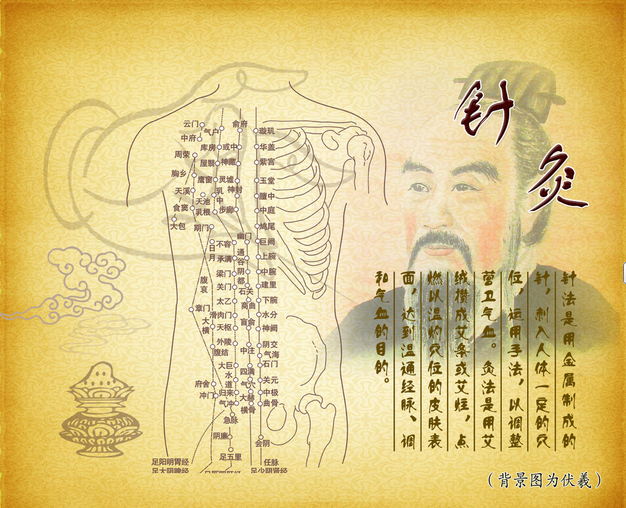 针灸
针法是用金属制成的
针，刺入人体一定的穴
位，运用手法，以调整
营卫气血。灸法是用艾
绒搓成艾条或艾炷，点
燃以温灼穴位的皮肤表
面，达到温通经脉、调
和气血的目的。
（背景图为伏羲）
云门
气户
俞府
璇玑
中府
库房
或中
华盖
周荣
屋翳
神藏
紫宫
胸乡
膺窗
灵墟
玉堂
天溪
乳中
神封
膻中
天池
食窦
乳根
步廊
中庭
大包
期门
鸠尾
幽门
日月
不容
通谷
巨阙
承满
上脘
腹哀
梁门
阴都
中脘
关门
石关
建里
太乙
商曲
下脘
章门
滑肉门
水分
大横
天枢
肓俞
神阙
外陵
中注
阴交
腹结
气海
石门
大巨
四满
关元
水道
气穴
府舍
归来
大赫
中极
冲门
气冲
横骨
曲骨
急脉
阴廉
会阴
足五里
足阳明胃经
任脉
足太阴脾经
足少阴肾经